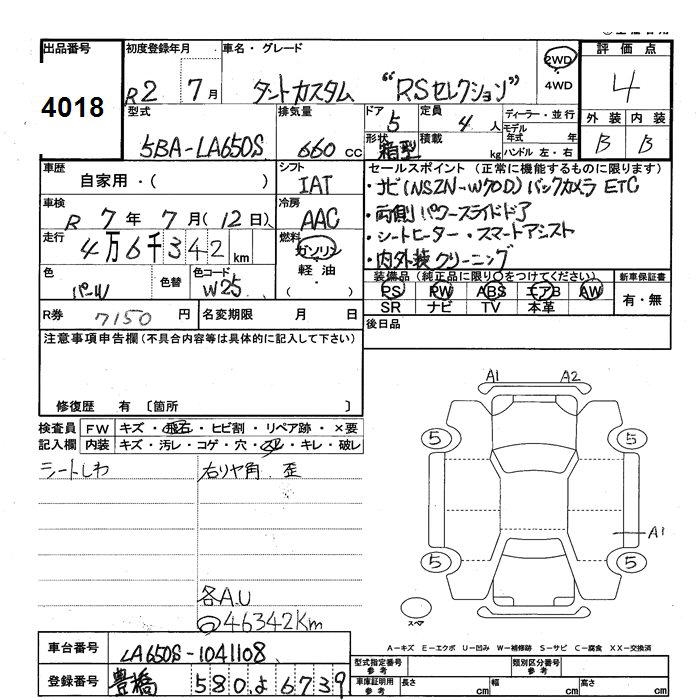 出品番号 初度登録年月 車名・グレード 2WD 4WD 評価点
4018 R2 7月 タントカスタム "RSセレクション" 4
型式 排気量 ドア 定員 ディーラー・並行 外装 内装
5BA-LA650S 660cc 5 4人 モデル年式 年 B B
形状 箱型 積載 kg ハンドル 左・右
車歴 シフト セールスポイント (正常に機能するものに限ります)
自家用・( ) IAT ・ナビ(NSZN-W70D) バックカメラ ETC
車検 冷房 ・両側パワースライドドア
R 7年 7月(12日) AAC ・シートヒーター・スマートアシスト
走行 燃料 ・内外装クリーニング
4万6千342km ガソリン 軽油・( )
色 色替 色コード 装備品(純正品に限り○をつけてください) 新車保証書
パール W25 PS PW ABS エアB AW 有・無
SR ナビ TV 本革
R券 7150円 名変期限 月 日 後日品
注意事項申告欄(不具合内容等は具体的に記入して下さい)
修復歴 有 〔箇所 〕
検査員 FW キズ・飛石・ヒビ割・リペア跡・×要
記入欄 内装 キズ・汚レ・コゲ・穴・スレ・キレ・破レ
シートしわ 右リヤ角 歪
A1 A2
5 5
A1
5 5
各A.U
46342Km
スペア
A-キズ E-エクボ U-凹み W-補修跡 S-サビ C-腐食 XX-交換済
車台番号 LA650S-1041108
型式指定番号 参考 類別区分番号 参考
登録番号 豊橋 580 よ 6739
車庫証明用 参考 長さ cm 幅 cm 高さ cm